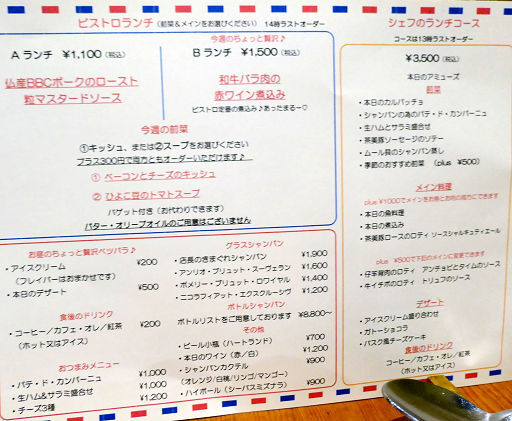 ビストロランチ（前菜＆メインをお選びください） 14時ラストオーダー
A ランチ ¥1,100（税込）
仏産BBCポークのロースト
粒マスタードソース
今週のちょっと贅沢♪
B ランチ ¥1,500（税込）
和牛バラ肉の
赤ワイン煮込み
ビストロ定番の煮込み♪あったまる〜♡
今週の前菜
①キッシュ、または②スープをお選びください
プラス300円で両方ともオーダーいただけます♪
① ベーコンとチーズのキッシュ
② ひよこ豆のトマトスープ
バゲット付き（お代わりできます）
バター・オリーブオイルのご用意はございません
お昼のちょっと贅沢ペッパラ♪
・アイスクリーム ¥200
（フレイバーはおまかせです）
・本日のデザート ¥500
食後のドリンク
・コーヒー/カフェ・オレ/紅茶 ¥200
（ホット又はアイス）
おつまみメニュー
・パテ・ド・カンパーニュ ¥1,000
・生ハム&サラミ盛合せ ¥1,000
・チーズ3種 ¥1,200
グラスシャンパン
・店長のきまぐれシャンパン ¥1,900
・アンリオ・ブリュット・スーヴェラン ¥1,600
・ポメリー・ブリュット・ロワイヤル ¥1,400
・ニコラフィアット・エクスクルーシヴ ¥1,200
ボトルシャンパン
ボトルリストをご用意しております ¥8,800〜
その他
・ビール小瓶（ハートランド） ¥700
・本日のワイン（赤/白） ¥1,200
・シャンパンカクテル ¥900
（オレンジ/白桃/リンゴ/マンゴー）
・ハイボール（シーバスミズナラ） ¥900
シェフのランチコース
コースは13時ラストオーダー
¥3,500（税込）
本日のアミューズ
前菜
・本日のカルパッチョ
・シャンパンの為のパテ・ド・カンパーニュ
・生ハムとサラミ盛合せ
・茶美豚ソーセージのソテー
・ムール貝のシャンパン蒸し
・季節のおすすめ前菜 （plus ¥500）
メイン料理
plus ¥1000でメインをお魚とお肉の両方にできます
・本日の魚料理
・本日の煮込み
・茶美豚ロースのロティ ソースシャルキュティエール
plus ¥500で下記のメインに変更できます
・仔羊背肉のロティ アンチョビとタイムのソース
・キイチボのロティ トリュフのソース
デザート
・アイスクリーム盛り合わせ
・ガトーショコラ
・バスク風チーズケーキ
食後のドリンク
コーヒー/カフェ・オレ/紅茶
（ホット又はアイス）